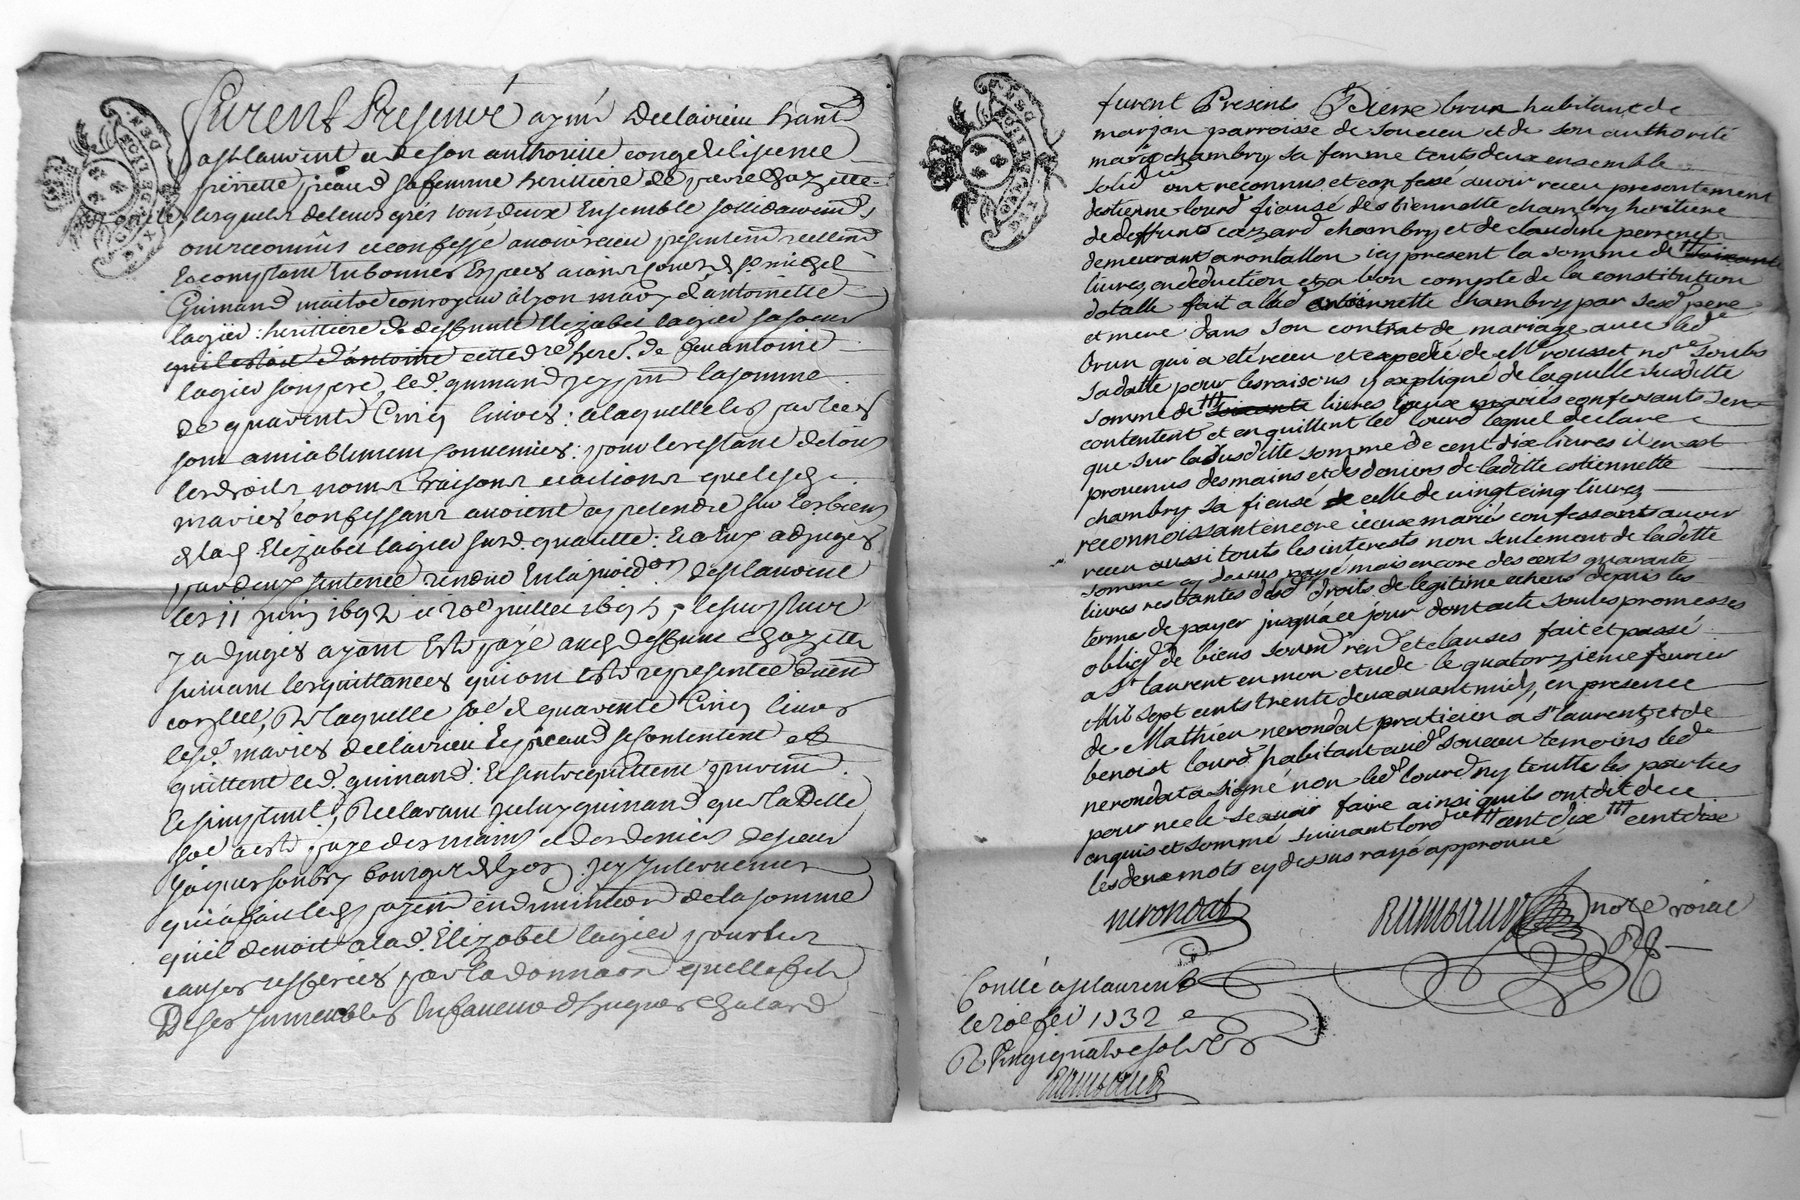 furent Presents aymé Declavieu hant
a st laurent et de son authorité conge et lisence
pierrette piraud sa femme herittiere de pierre chazette
lesquels de leurs grés tous deux Ensemble sollidairemt
ont reconnus et confessé avoir receu presentemt reellemt
Et comptant En bonnes Espèces
Guinand maitre conroyeur a lyon mary d'antoinette
lagier herittiere de deffunte Elizabet lagier sa soeur
qui estoit d'antoine cette dre here. de feu antoine
lagier son pere, led. guinand icy pnt la somme
de quarente Cinq livres: a laquelle les parties
sont amiablement convenues: pour le restant de tous
les droits noms raisons et actions que lesd.
mariés confessans avoient a pretendre sur les biens
de lad. Elizabet lagier surd. qualitté: Et a eux adjugés
par deux sentence rendue En la jurid.on de st laurent
les 11 juin 1692 et 20e juillet 1695, le surplus
y adjugés ayant Esté payé aud. deffunt chazette
suivant les quittances qui ont Esté representée
de laquelle soe de quarente Cinq livres
lesd. mariés declavieu Et piraud se contentent et
quittent led. guinand: Et s'entrequittent
declarant iceluy guinand que la ditte
soe a esté payé des mains et des deniers de sieur
jaques bourgeois de lyon icy Intervenant
qui a fait led. payemt en diminution de la somme
qu'il devoit a lad. Elizabet lagier pour les
causes resferées par la donnaon quelle a fait
De ses Immeubles En faveur d'hugues chalard
furent Presents Pierre brun habitant de
marjon parroisse de soucieu et de son authorité
marie chambry sa femme touts deux ensemble
solidt ont reconnus et confessé avoir receu presentement
d'estienne lourd fieusé d'estiennette chambry heritiere
de deffunts cazard chambry et de claudine perrenet
demeurant a rontallon icy present la somme de
livres, en deduction et a bon compte de la constitution
dotalle fait a lad. estiennette chambry par sesd. pere
et mere dans son contrat de mariage avec led.
brun qui a été receu et expedié de Me rousset nore soubs
sa datte pour les raisons y expliqué de laquelle susditte
somme de soixante livres iceux mariés confessants s'en
contentent et en quittent led. lourd lequel declare
que sur la susditte somme de cent dix livres il en est
provenus des mains et des deniers de laditte estiennette
chambry sa fieusé celle de vingt cinq livres
reconnoissant encore iceux mariés confessants avoir
receu aussi touts les interests non seulement de laditte
somme cy dessus payé mais encore des cents quarante
livres restantes desd. droits de legitime echeus depuis les
terme de payer jusqu'a ce jour dont acte soubs promesses
obligon de biens soumon renon et clauses fait et passé
a St laurent en mon etude le quatorzieme fevrier
Mil sept cents trente deux avant midy en presence
de Mathieu nerondat praticien a St laurent et de
benoist lourd habitant aud. soucieu temoins led.
nerondat a signé non led. lourd ny touttes les parties
pour ne le scavoir faire ainsi quils ont dit de ce
enquis et sommé suivant l'ordce cent dix cent dix
les deux mots cy dessus rayé approuvé
nerondat
nore roial
Conllé a st laurent
le 20e fev 1732
R Vingt quatre sols